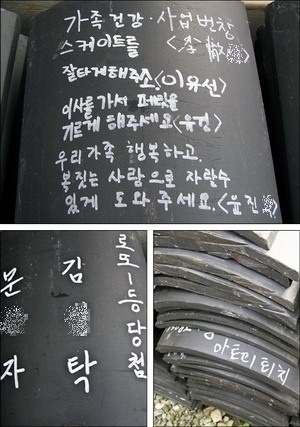 가족건강·사업번창
스케이트를 <李
잘타게해주소!(이유선)
이사를가서 페릿을
기르게 해주세요<유경>
우리가족 행복하고.
복짓는 사람으로 자란수
있게 도와주세요.<윤진
로또1등당첨
김 탁
문 자
아토피퇴치